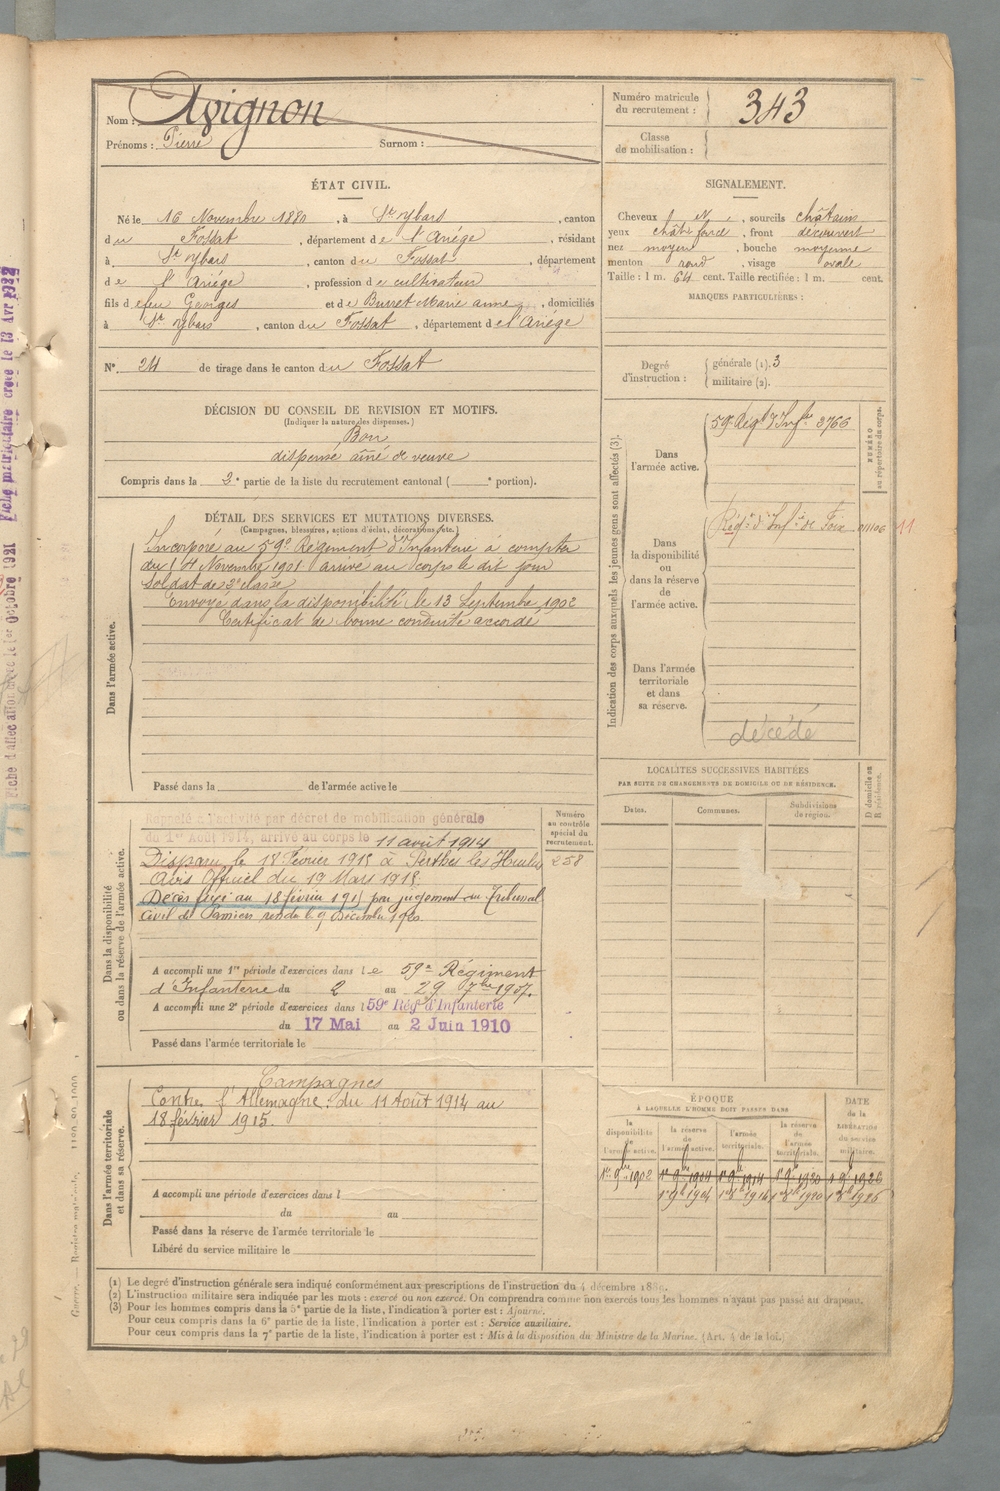 Nom : Avignon
Prénoms : Pierre Surnom :
Numéro matricule du recrutement : 343
Classe de mobilisation :
ÉTAT CIVIL.
Né le 16 Novembre 1880, à St Ybars, canton
du Fossat, département de l'Ariége, résidant
à St Ybars, canton du Fossat, département
de l'Ariége, profession de cultivateur
fils de feu Georges et de Burret Marie anne, domiciliés
à St Ybars, canton du Fossat, département de l'Ariége
N° 24 de tirage dans le canton du Fossat
DÉCISION DU CONSEIL DE REVISION ET MOTIFS.
(Indiquer la nature des dispenses.)
Bon
dispensé aîné de veuve
Compris dans la 2e partie de la liste du recrutement cantonal ( e portion).
DÉTAIL DES SERVICES ET MUTATIONS DIVERSES.
(Campagnes, blessures, actions d'éclat, décorations, etc.)
Dans l'armée active.
Incorporé au 59e Régiment d'Infanterie à compter
du 14 Novembre 1901 arrivé au corps le dit jour
Soldat de 2e classe
Envoyé dans la disponibilité le 13 Septembre 1902
Certificat de bonne conduite accordé
Passé dans l de l'armée active le
Dans la disponibilité ou dans la réserve de l'armée active.
Rappelé à l'activité par décret de mobilisation générale
du 1er Août 1914, arrivé au corps le 11 août 1914
Disparu le 18 Février 1915 à Perthes les Hurlus
Avis Officiel du 19 Mars 1915.
Décès fixé au 18 février 1915 par jugement du Tribunal
Civil de Pamiers rendu le 9 Décembre 1920.
A accompli une 1re période d'exercices dans le 59e Régiment
d'Infanterie du 2 au 29 7bre 1907.
A accompli une 2e période d'exercices dans l 59e Régt d'Infanterie
du 17 Mai au 2 Juin 1910
Passé dans l'armée territoriale le
Numéro au contrôle spécial du recrutement.
258
Dans l'armée territoriale et dans sa réserve.
Campagnes
Contre l'Allemagne : du 11 Août 1914 au
18 février 1915.
A accompli une période d'exercices dans l
du au
Passé dans la réserve de l'armée territoriale le
Libéré du service militaire le
SIGNALEMENT.
Cheveux, sourcils châtains
yeux chât foncé, front découvert
nez moyen, bouche moyenne
menton rond, visage ovale
Taille : 1 m. 64 cent. Taille rectifiée : 1 m. cent.
MARQUES PARTICULIÈRES :
Degré d'instruction : générale (1). 3
militaire (2).
Indication des corps auxquels les jeunes gens sont affectés (3).
NUMÉRO au répertoire du corps.
Dans l'armée active.
59e Régt d'Infie 3766
Dans la disponibilité ou dans la réserve de l'armée active.
Régt d'Infie de Foix 01106 11
Dans l'armée territoriale et dans sa réserve.
décédé
LOCALITÉS SUCCESSIVES HABITÉES
PAR SUITE DE CHANGEMENTS DE DOMICILE OU DE RÉSIDENCE.
Dates. Communes. Subdivisions de région. D domicile ou R résidence.
ÉPOQUE
À LAQUELLE L'HOMME DOIT PASSER DANS
DATE de la LIBÉRATION du service militaire.
la disponibilité de l'armée active. la réserve de l'armée active. l'armée territoriale. la réserve de l'armée territoriale.
1er 9bre 1902 1er 9bre 1904 1er 9bre 1914 1er 9bre 1920 1er 9bre 1926
(1) Le degré d'instruction générale sera indiqué conformément aux prescriptions de l'instruction du 4 décembre 1889.
(2) L'instruction militaire sera indiquée par les mots : exercé ou non exercé. On comprendra comme non exercés tous les hommes n'ayant pas passé au drapeau.
(3) Pour les hommes compris dans la 5e partie de la liste, l'indication à porter est : Ajourné.
Pour ceux compris dans la 6e partie de la liste, l'indication à porter est : Service auxiliaire.
Pour ceux compris dans la 7e partie de la liste, l'indication à porter est : Mis à la disposition du Ministre de la Marine. (Art. 4 de la loi.)
Fiche matriculaire créée le 13 Avr 1922
1er Octobre 1921